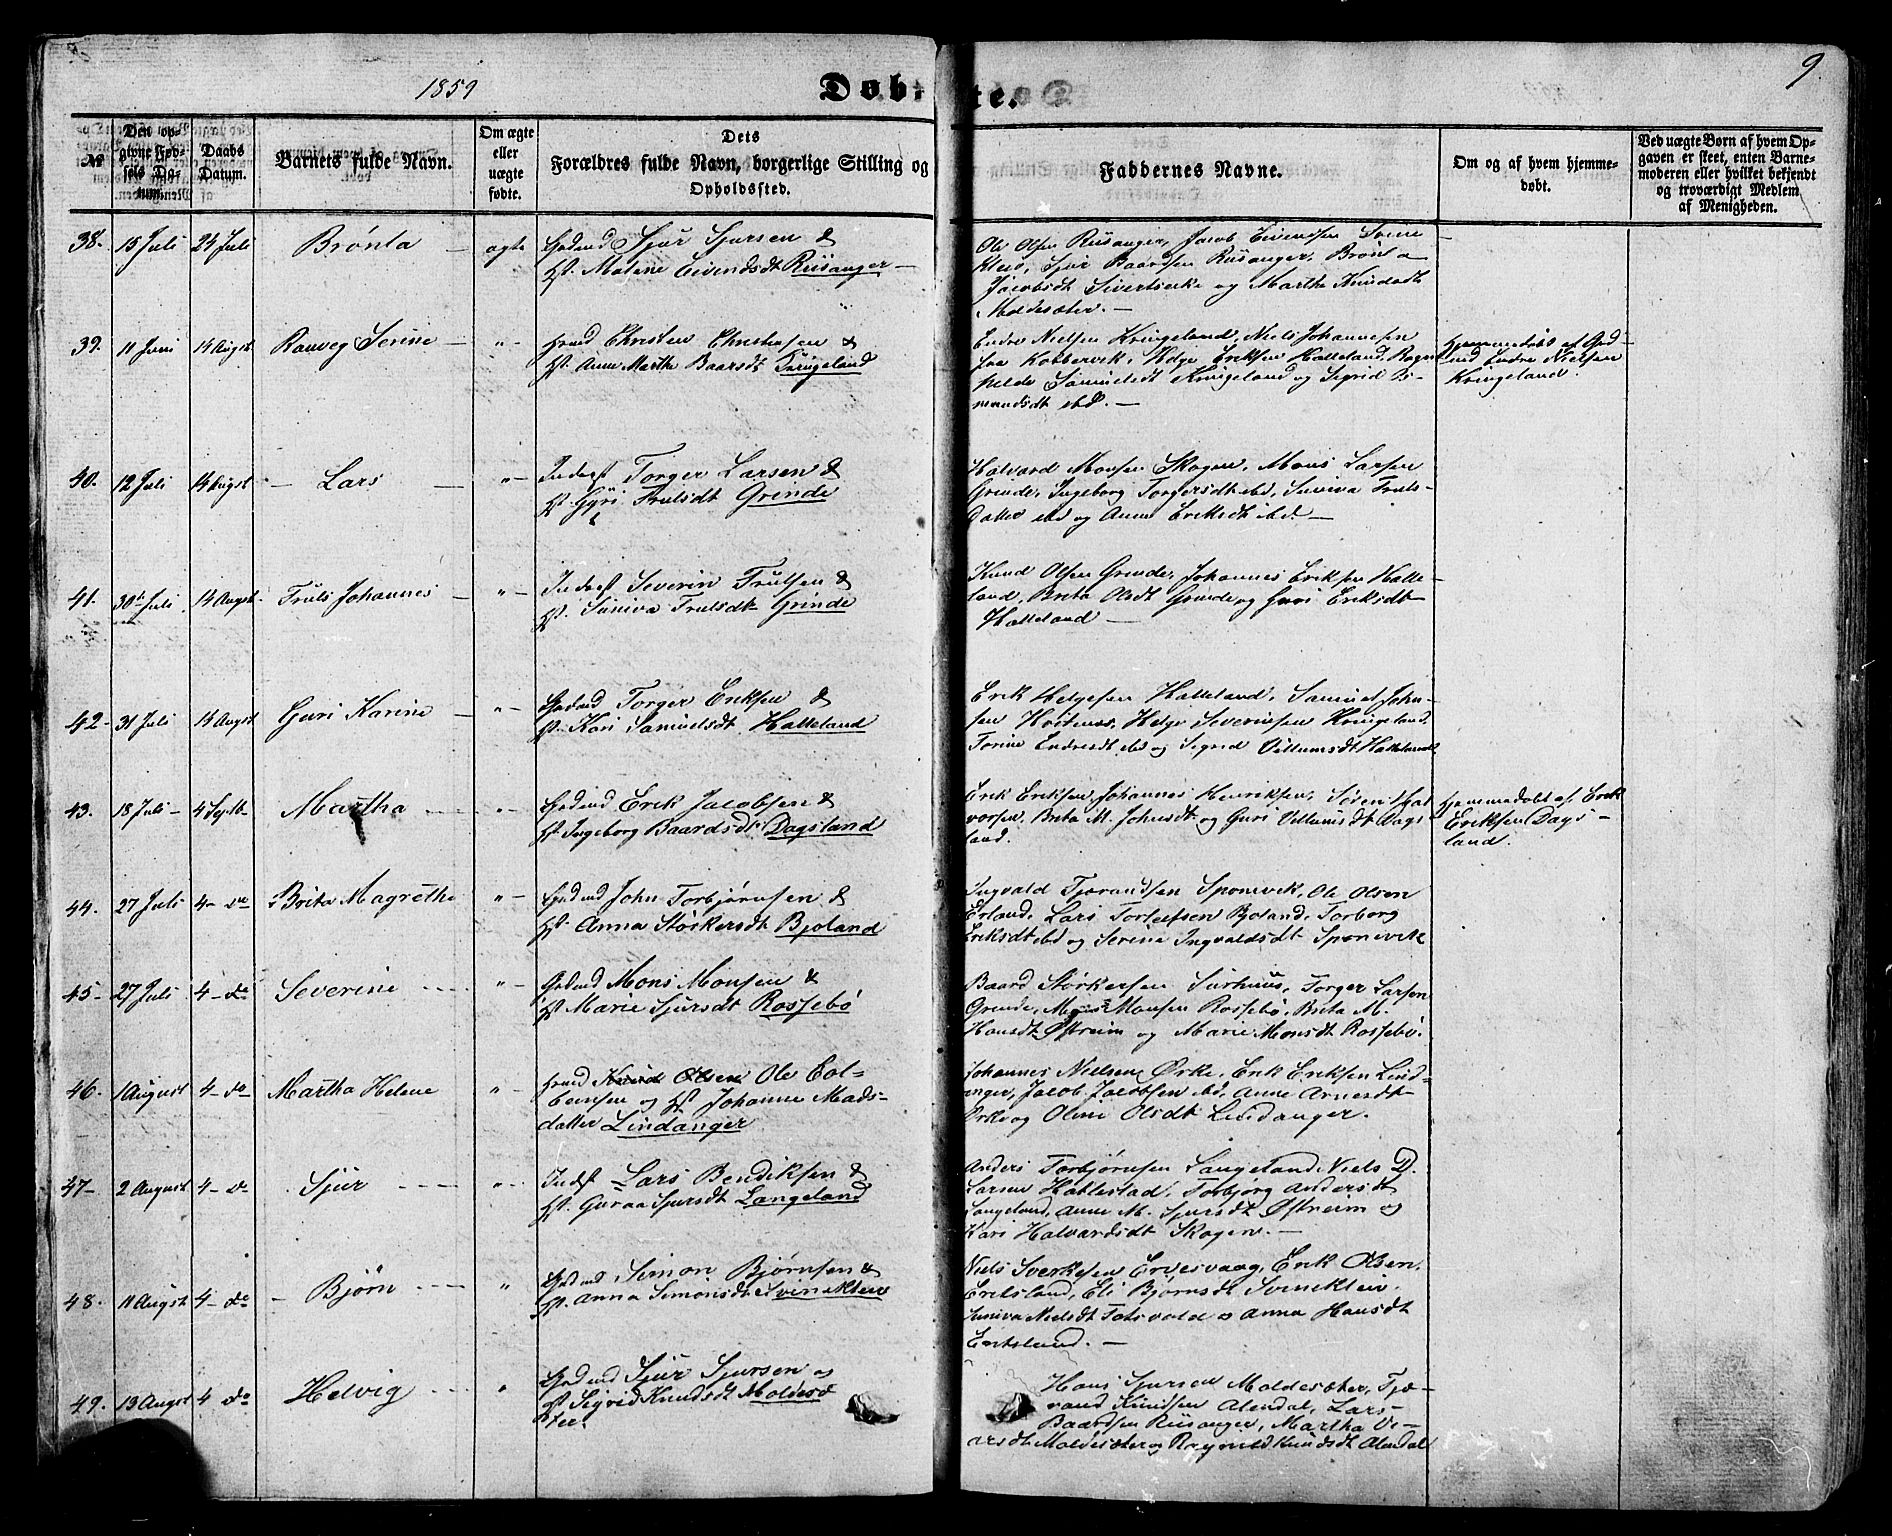 1859
Døbte.
9
№
Den op-
givne Fød-
sels Da-
tum.
Daabs
Datum.
Barnets fulde Navn.
Om ægte
eller
uægte
fødte.
Dets
Forældres fulde Navn, borgerlige Stilling og
Opholdssted.
Faddernes Navne.
Om og af hvem hjemme-
døbt.
Ved uægte Børn af hvem Op-
gaven er skeet, enten Barne-
moderen eller hvilket bekjendt
og troværdigt Medlem
af Menigheden.
38. 15 Juli 24 Juli Brønla — ægte Sjur Sjursen &
Malene Eivindsdt Risanger —
Ole Olsen Risanger, Jacob Eivendsen Svine
kleiv, Sjur Baardsen Risanger, Brønla
Jacobsdt og Martha Knudsdt
Moldesæter. —
39. 11 Juni 14 Augst Ranveg Serine — "- Christen Christensen &
Anne Martha Baarsdt
Endre Nielsen Kringeland, Niels Johannesen
fra Kobbervik, Helge Eriksen Halleland, Ragn
hilde Samuelsdt Kringeland og Sigrid Os-
mundsdt ibd. —
Hjemmedøbt af
Endre Nielsen
Kringeland.
40. 12 Juli 14 Augst — Lars — "- Inderst Torger Larsen &
Guri Trulsdt Grinde
Halvard Monsen Skogen, Mons Larsen
Grinde, Ingeborg Torgersdt ibd, Suniva Truls-
datter ibd og Anne Eriksdt ibd. —
41. 30te Juli 14 Augst. Truls Johannes — "- Inderst Severin Trulsen &
Suniva Trulsdt Grinde
Knud Olsen Grinde, Johannes Eriksen Halle-
land, Brita Olsdt Grinde og Guri Eriksdt
Halleland —
42- 31 Juli 14 Augst Guri Karine — "- Torger Eriksen &
Kari Samuelsdt Halleland
Erik Helgesen Halleland, Samuel John-
sen Hvitenes, Helge Severinsen Kringeland
Torine Endresdt ibd og Sigrid Villumsdt Halleland.
43. 18 Juli — 4 Septb. Martha "- Erik Jacobsen &
Ingeborg Baardsdt Dagsland
Erik Eriksen, Johannes Henriksen, Søren Hal
vorsen, Brita M. Johnsdt og Guri Villumsdt Dags
land.
Hjemmedøbt af Erik
Eriksen Dags-
land.
44. 27 Juli 4- do Brita Magretha "- John Torbjørnsen &
Anna Størkersdt Bjoland
Ingvald Tjerandsen Sponevik, Ole Olsen
Erland, Lars Torleifsen Bjoland, Torborg
Eriksdt ibd og Serine Ingvaldsdt Sponevik
45- 27 Juli 4- do Severine "- Mons Monsen &
Marie Sjursdt Rossebø
Baard Størkersen Surhuus, Torger Larsen
Grinde, Mons Monsen Rossebø, Brita M.
Hansdt Østreim og Marie Monsdt Rossebø.
46. 1 August 4- do Martha Helene "- Knud Olsen Ole Col-
bensen og Johanne Mads-
datter Lindanger
Johannes Nielsen Ørke, Erik Eriksen Lind-
anger, Jacob Jacobsen ibd, Anne Arnesdt
Ørke og Oline Olsdt Lindanger.
47- 2 August 4- do Sjur "- Indst Lars Bendiksen &
Guraa Sjursdt Langeland
Anders Torbjørnsen Langeland, Niels D.
Larsen Hallestad, Torbjørg Andersdt
Langeland, Anne M. Sjursdt Østreim og
Kari Halvardsdt Skogen. —
48. 11 Augst 4- do — Bjørn " Simon Bjørnsen &
Anna Simonsdt Svinekleiv
Niels Sverkesen Ervesvaag, Erik Olsen
Eretsland, Eli Bjørnsdt Svinekleiv,
Suniva Nielsdt og Anna Hansdt
Eretsland. —
49. 13 Augst 4 do Helvig " Sjur Sjursen og
Sigrid Knudsdt Moldesæ
ter.
Hans Sjursen Moldesæter, Tjæ-
rand Knudsen Alendal, Lars
Baardsen Risanger, Martha
Moldesæter og Ragnild Knudsdt Alendal